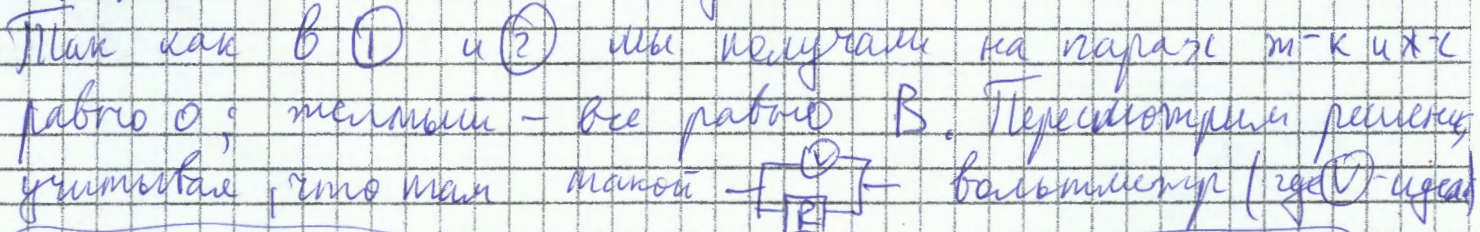 Так как в ① и ② мы получали на парах ж-к и ж-с
равно 0; желтый - все равно В. Пересмотрим решени
учитывая, что там такой V R вольтметр (где V - идеал)